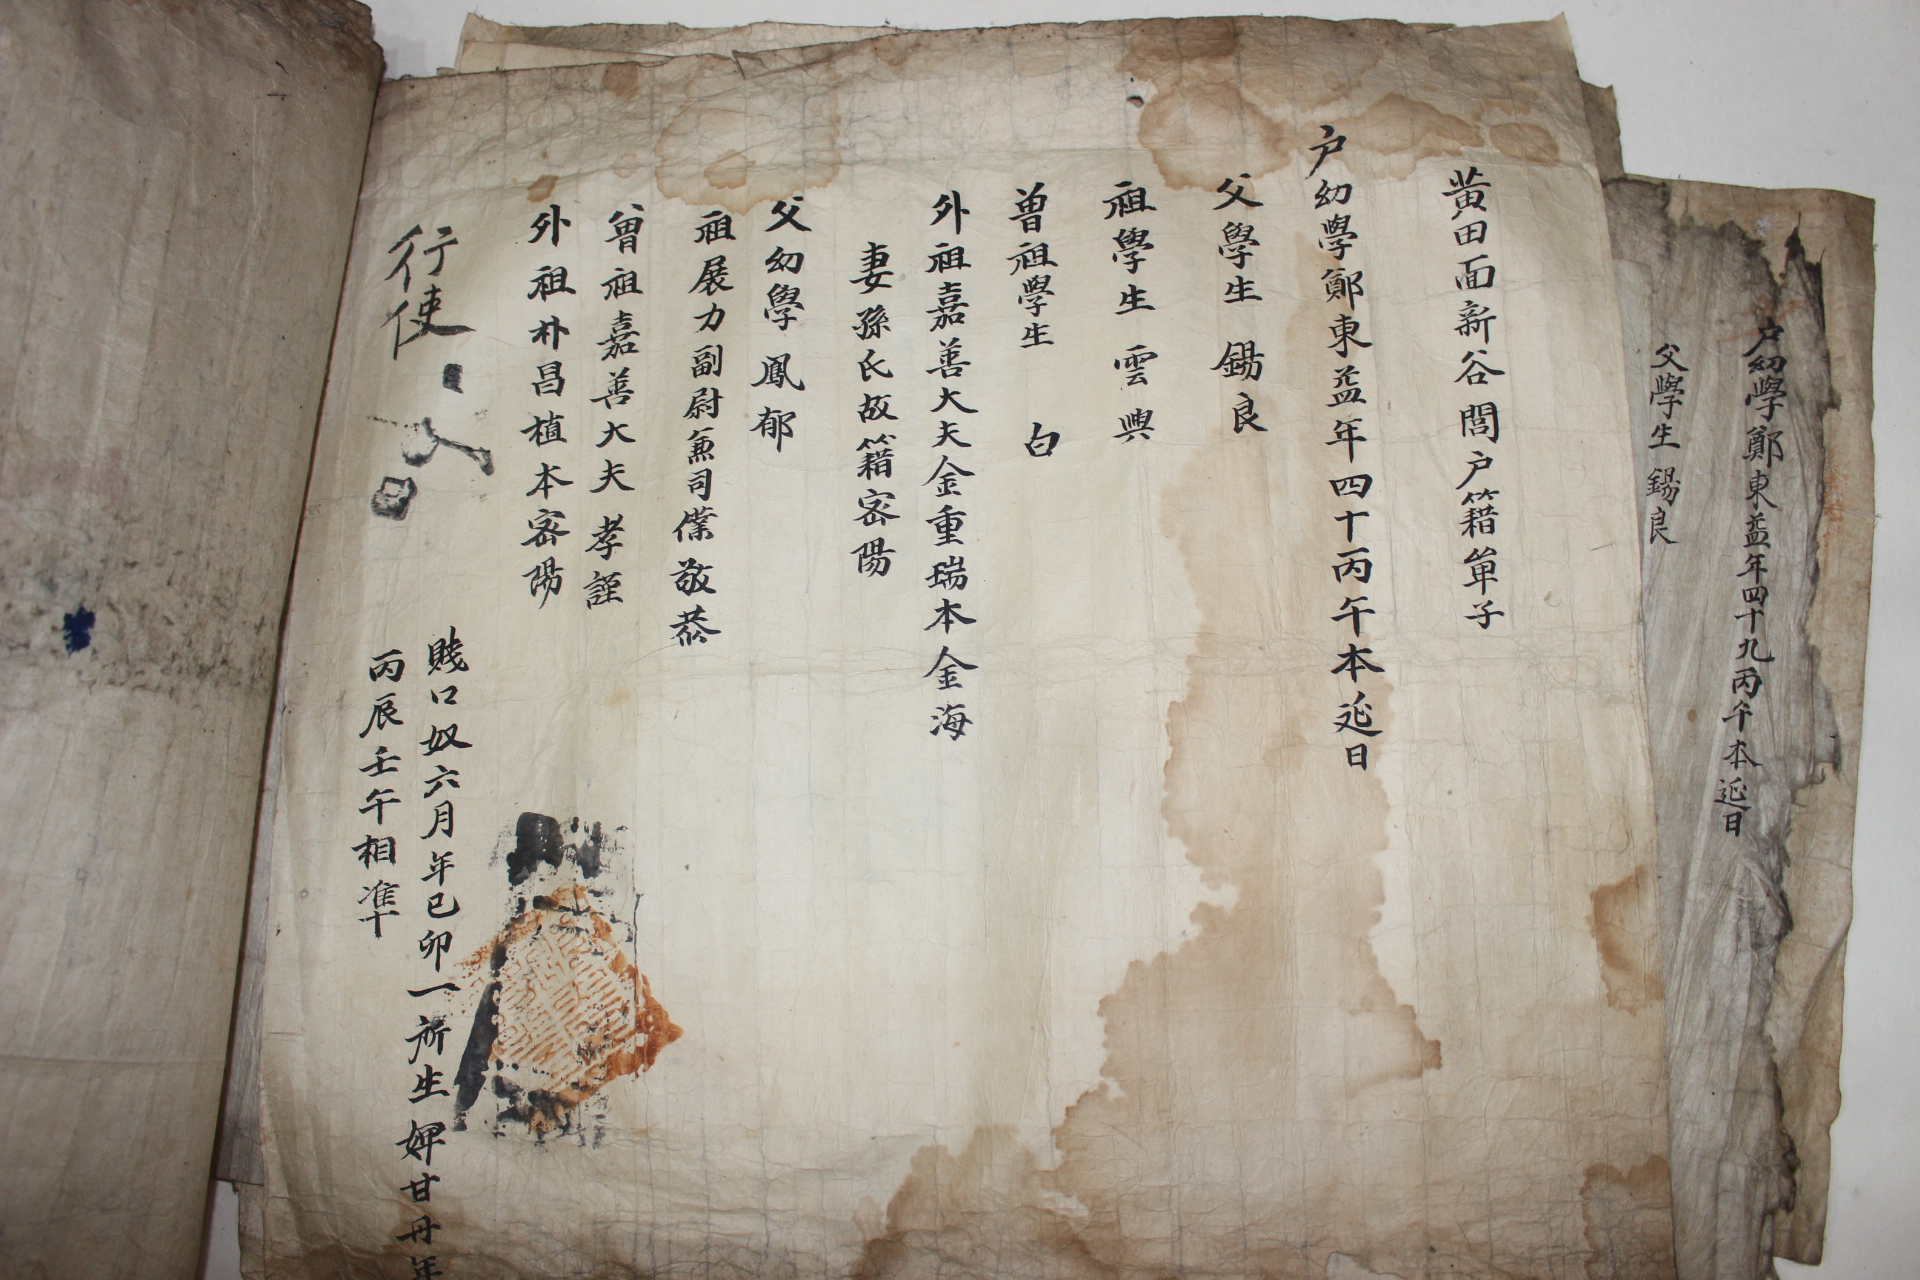 户幼學鄭東益年四十九丙午本延日
父學生錫良
黄田面新谷閭户籍單子
户幼學鄭東益年四十丙午本延日
父學生錫良
祖學生雲興
曽祖學生白
外祖嘉善大夫金重瑞本金海
妻孫氏故籍密陽
父幼學鳳郁
祖展力副尉兼司僕敬恭
曽祖嘉善大夫孝謹
外祖朴昌植本密陽
賤口奴六月年己卯一所生婢甘丹年
丙辰壬午相準
行使